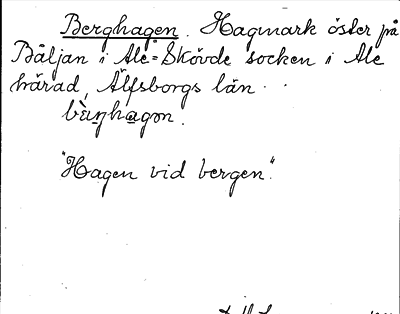 Berghagen. Hagmark öster på
Båljan i Ale-Skövde socken i Ale
härad, Älfsborgs län.
bàŋhagən.
"Hagen vid bergen".